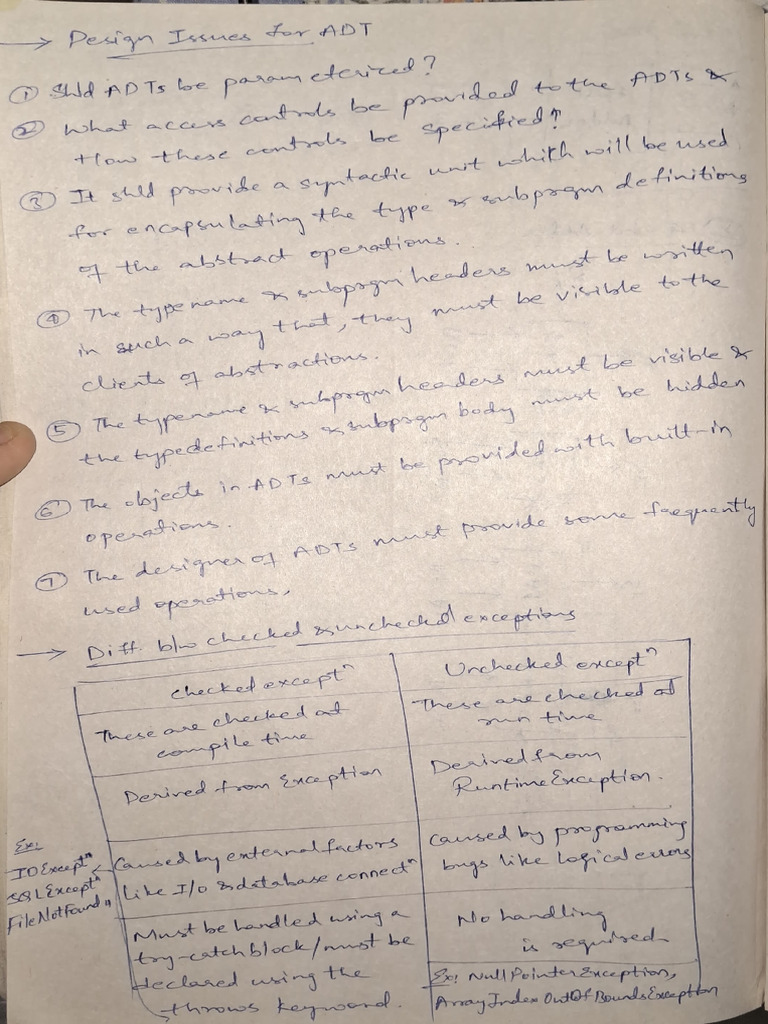 → Design Issues for ADT
① Shld ADTs be parameterized?
② What access controls be provided to the ADTs &
How these controls be specified?
③ It shld provide a syntactic unit which will be used
for encapsulating the type & subprgm definitions
of the abstract operations.
④ The type name & subprgm headers must be written
in such a way that, they must be visible to the
clients of abstractions.
⑤ The typename & subprgm headers must be visible &
the typedefinitions & subprgm body must be hidden
⑥ The objects in ADTs must be provided with built-in
operations.
⑦ The designer of ADTs must provide some frequently
used operations,
→ Diff. b/w checked & unchecked exceptions
checked exceptⁿ
Unchecked exceptⁿ
These are checked at
compile time
These are checked at
run time
Derived from Exception
Derived from
RuntimeException.
Caused by external factors
like I/o & database connectⁿ
Ex:
IOExceptⁿ
SQLExceptⁿ
FileNotFound "
Caused by programming
bugs like logical errors
Must be handled using a
try-catch block/must be
declared using the
throws keyword.
No handling
is required
Ex: NullPointerException,
ArrayIndexOutOfBoundsException